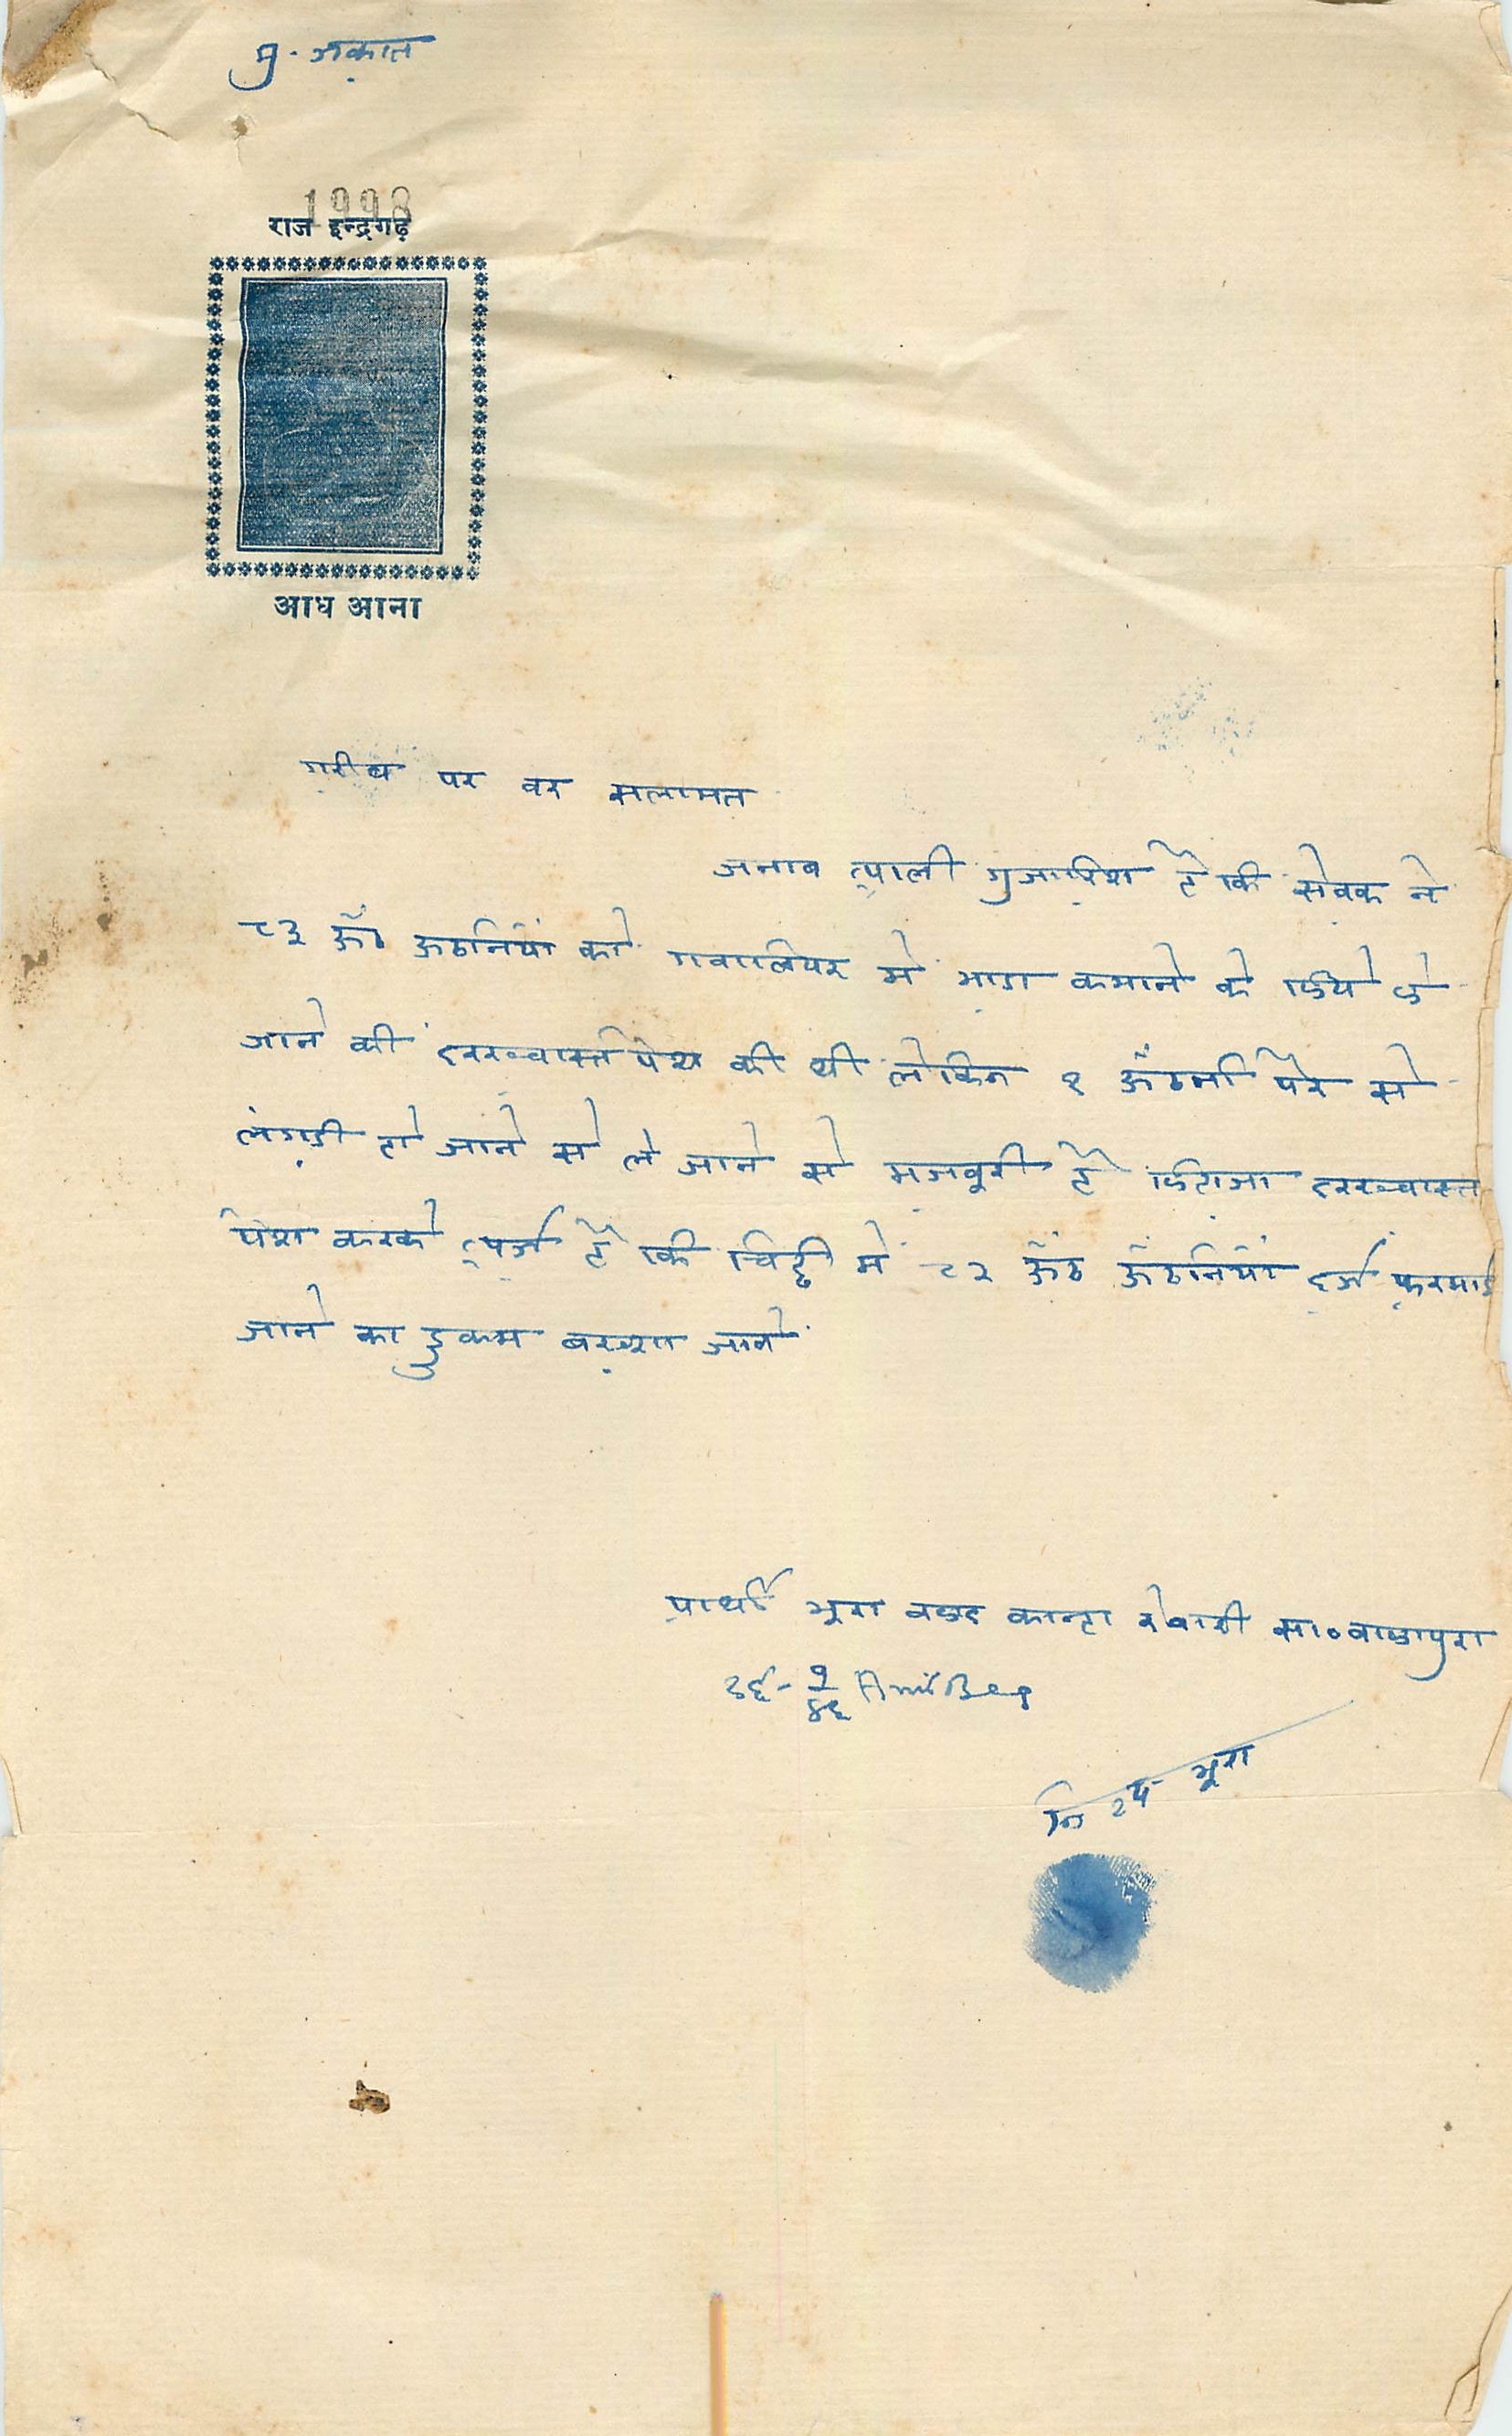 मु. ज़कात
1998
राज इन्द्रगढ़
आध आना
ग़रीब पर वर सलामत
जनाब आली गुजारिश है कि सेवक ने
८३ ऊँट ऊटनियां को गवालियर में भाडा कमाने के लिये ले
जाने की दरख्वास्त पेश की थी लेकिन १ ऊँटनी पैर से
लंगड़ी हो जाने से ले जाने से मजबुरी है लिहाजा दरख्वास्त
पेश करके अर्ज है कि चिट्ठी में ८२ ऊँट ऊँटनियाँ दर्ज फरमाई
जाने का हुकम बख़्शा जावे
प्रार्थी भूरा वलद कान्हा रेबारी सा० बालापुरा
भूरा